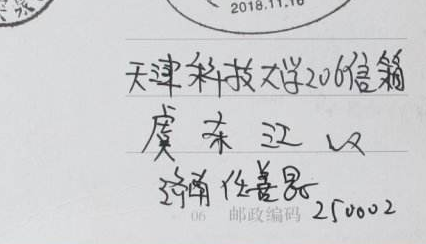 2018.11.16
天津科技大学206信箱
虞东江 收
济南任善恩
250002
06 邮政编码